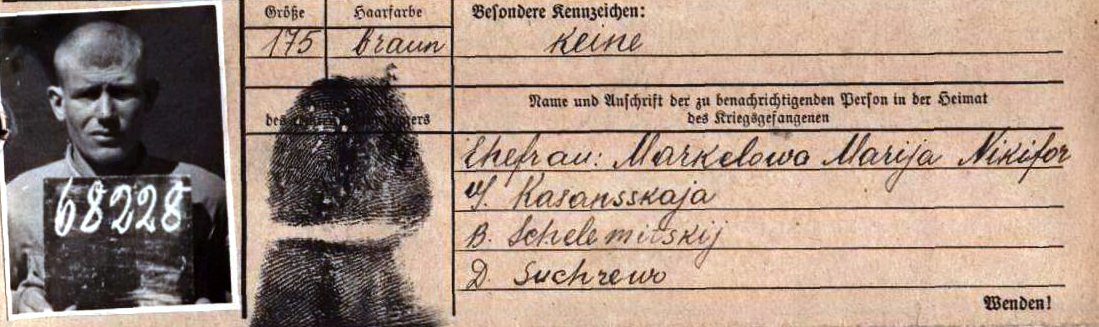 68228
Größe Haarfarbe
175 braun
des
Besondere Kennzeichen:
keine
Name und Anschrift der zu benachrichtigenden Person in der Heimat
des Kriegsgefangenen
Ehefrau: Markelowa Marija Nikifor
Kasansskaja
B. Schelemitskij
D. Suchrewo
Wenden!